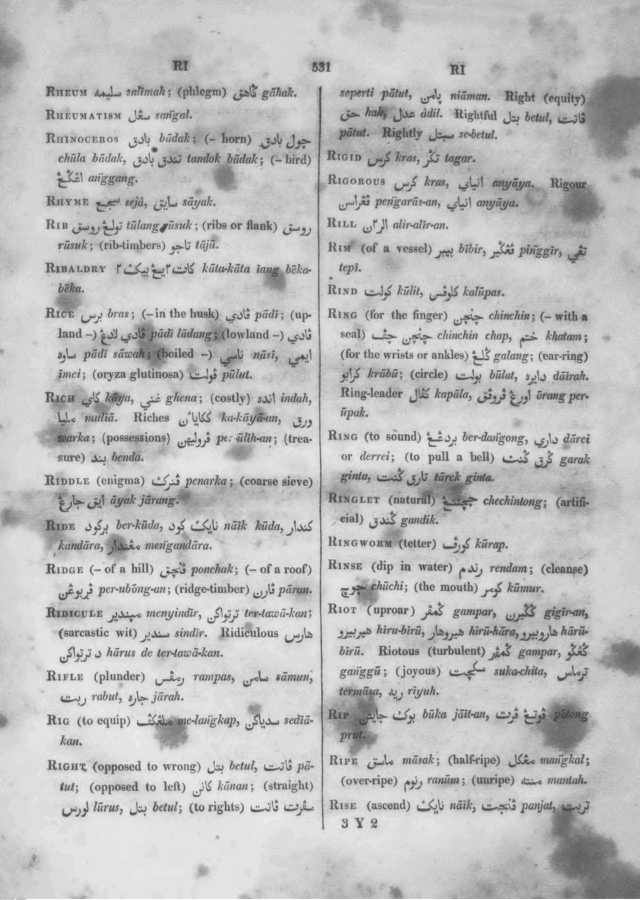 RI
531
RI
RHEUM سليمه salīmah; (phlegm) ڬاهق gāhak.
RHEUMATISM سڠل sangal.
RHINOCEROS بادق bādak; (– horn) چول بادق
chūla bādak, تندق بادق tandok bādak; (– bird)
اڠڬڠ anggang.
RHYME سجع sejā, سايق sāyak.
RIB تولڠ روسق tūlang rūsuk; (ribs or flank) روسق
rūsuk; (rib-timbers) تاجو tājū.
RIBALDRY كات٢ يڠ بيك٢ kāta-kāta īang bēka-
bēka.
RICE برس bras; (– in the husk) ڤادي pādī; (up-
land –) ڤادي لادڠ pādī lādang; (lowland –) ڤادي
ساوه pādī sāwah; (boiled –) ناسي nāsī, ايمي
īmei; (oryza glutinosa) ڤولت pūlut.
RICH كاي kāya, غني ghena; (costly) انده indah,
مليا muliā. Riches ككاياءن ka-kāyā-an, ورق
warka; (possessions) ڤروليهن per-ūlih-an; (trea-
sure) بند benda.
RIDDLE (enigma) ڤنرك penarka; (coarse sieve)
ايق جارڠ āyak jārang.
RIDE بركود ber-kūda, نايك كود nāīk kūda, كندار
kandāra, مڠندار mengandāra.
RIDGE (– of a hill) ڤنچق ponchak; (– of a roof)
ڤربوڠن per-ubūng-an; (ridge-timber) ڤارن pāran.
RIDICULE مينديR menyindir, ترتواكن ter-tawā-kan;
(sarcastic wit) سندير sindir. Ridiculous هارس
د ترتواكن hārus de ter-tawā-kan.
RIFLE (plunder) رمڤس rampas, سامن sāmun,
ربت rabut, جاره jārah.
RIG (to equip) ملڠكڤ me-langkap, سدياكن sediā-
kan.
RIGHT (opposed to wrong) بتل betul, ڤاتت pā-
tut; (opposed to left) كانن kānan; (straight)
لورس lūrus, بتل betul; (to rights) سڤرت ڤاتت
seperti pātut, يامن niāman. Right (equity)
حق hak, عدل ādil. Rightful بتل betul, ڤاتت
pātut. Rightly سبتل se-betul.
RIGID كرس kras, تڬر tagar.
RIGOROUS كرس kras, انياي anyāya. Rigour
ڤڠراسن pengarās-an, انياي anyāya.
RILL الر٢ن alir-alīr-an.
RIM (of a vessel) بيبر bībir, ڤڠڬير pinggir, تڤي
tepi.
RIND كولت kūlit, كلوڤس kalūpas.
RING (for the finger) چنچن chinchin; (– with a
seal) چنچن چڤ chinchin chap, ختم khatam;
(for the wrists or ankles) ڬلڠ galang; (ear-ring)
كرابو krābū; (circle) بولت būlat, دايره dāīrah.
Ring-leader كڤال kapāla, اورڠ ڤروڤق ōrang per-
ūpak.
RING (to sound) بردڠڠ ber-dangong, داري dārei
or derrei; (to pull a bell) ڬرق ڬنت garak
ginta, تارق ڬنت tārek ginta.
RINGLET (natural) چچنتڠ chechintong; (artifi-
cial) ڬندق gandik.
RINGWORM (tetter) كورڤ kūrap.
RINSE (dip in water) رندم rendam; (cleanse)
چوچي chūchi; (the mouth) كومر kūmur.
RIOT (uproar) ڬمڤر gampar, ڬڬيرن gigir-an,
هيروبيرو hiru-birū, هيروهار hirū-hāra, هاروبيرو hārū-
birū. Riotous (turbulent) ڬمڤر gampar, ڬڠڬو
ganggū; (joyous) سكچت suka-chita, ترماس
termāsa, ريه riyuh.
RIP بوك جاءيتن būka jāīt-an, ڤوتڠ ڤرت pōtong
prut.
RIPE ماسق māsak; (half-ripe) مڠكل mangkal;
(over-ripe) رنوم ranūm; (unripe) منته mantah.
RISE (ascend) نايك nāīk, ڤنجت panjat, تربت
3 Y 2